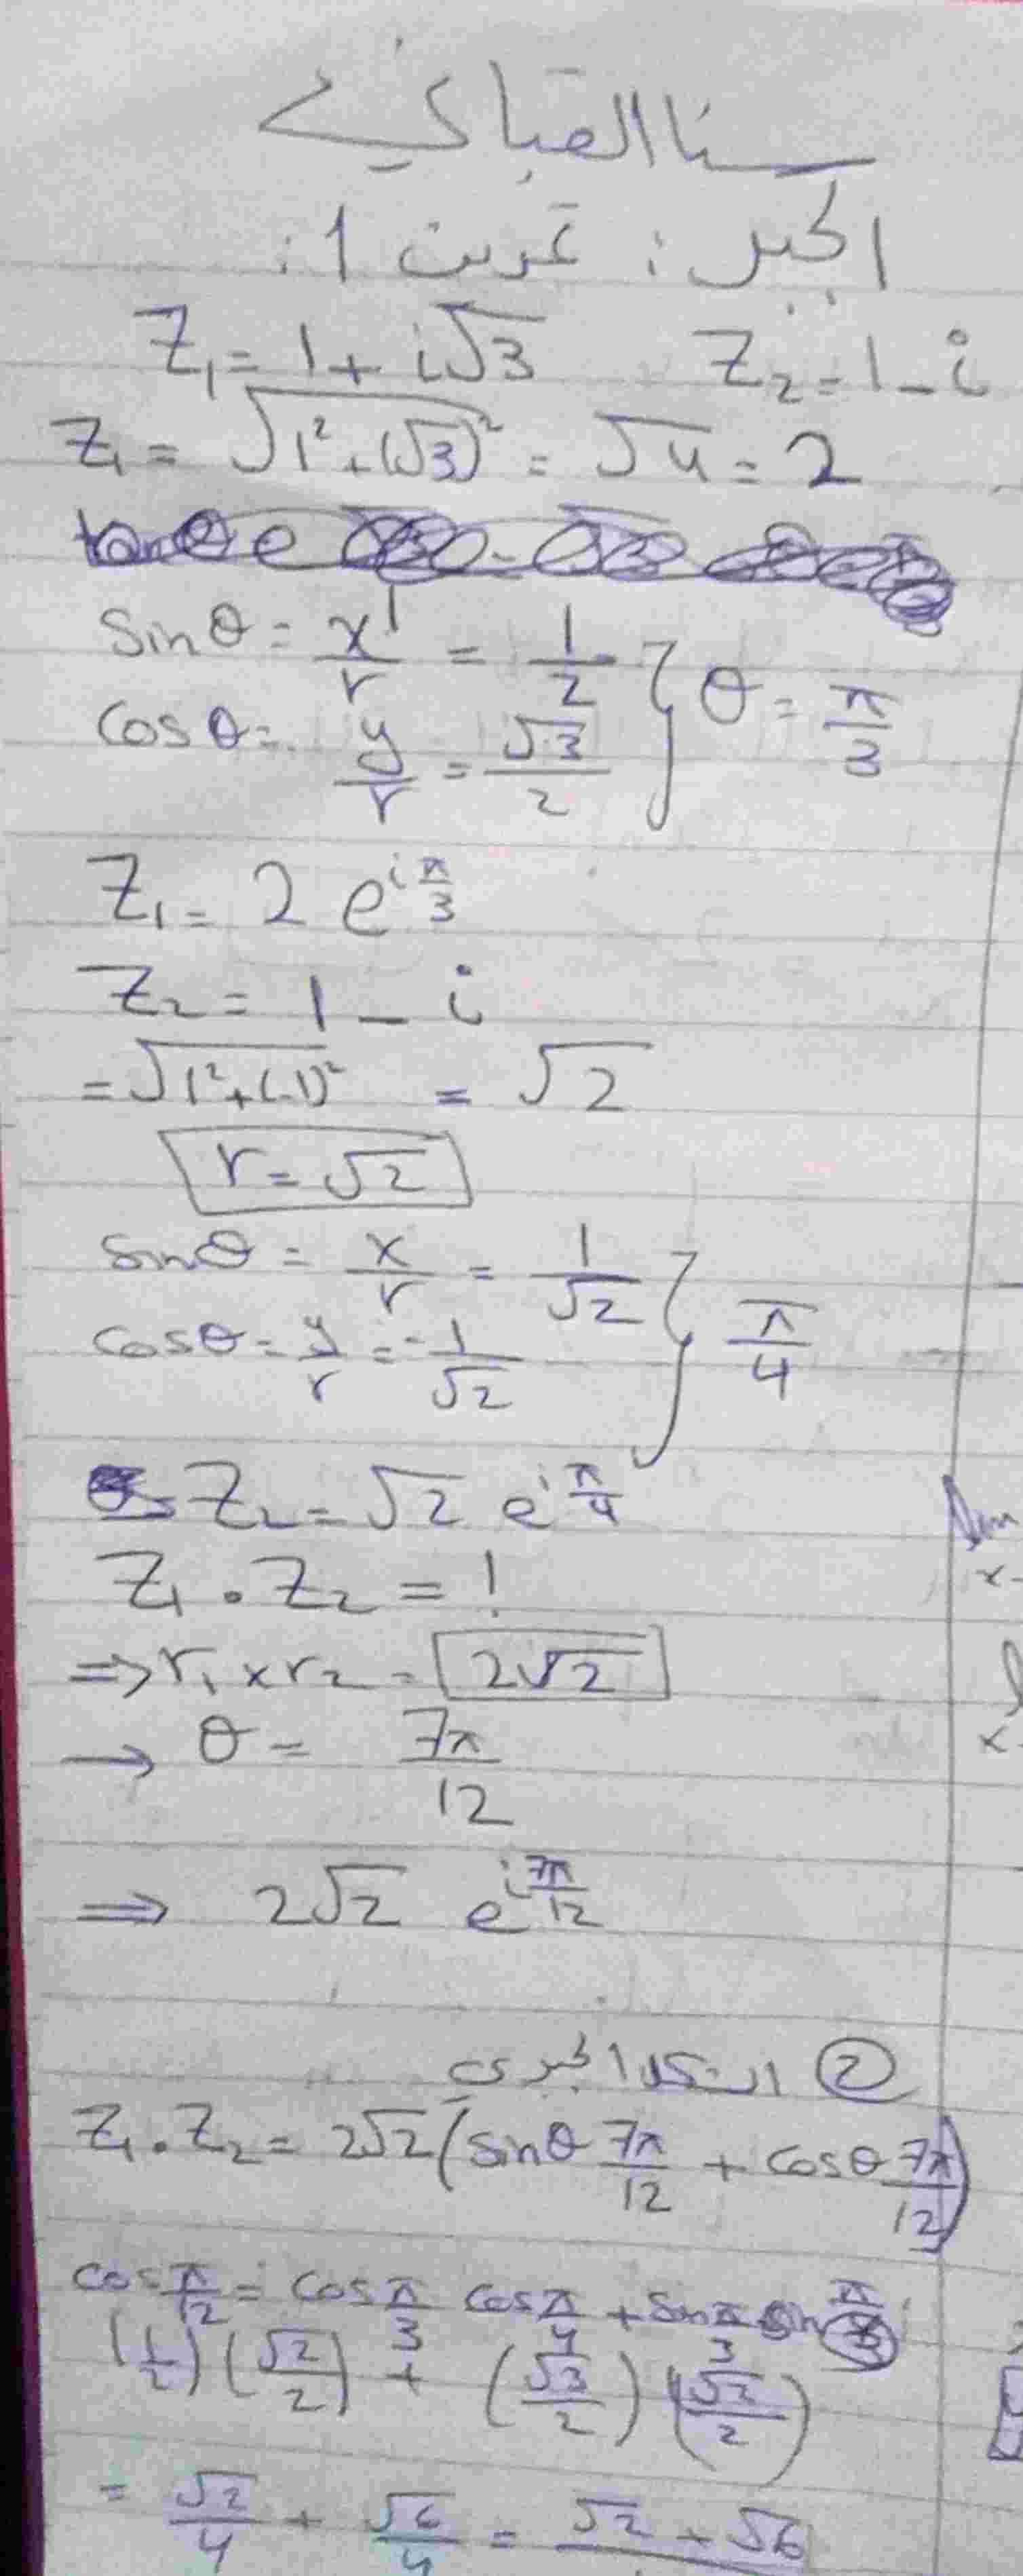 سنا القباني
الجبر : تمرين 1 :
Z₁ = 1 + i√3    Z₂ = 1 - i
Z₁ = √(1² + (√3)²) = √4 = 2
sinθ = x/r = 1/2
cosθ = y/r = √3/2 } θ = π/3
Z₁ = 2 e^(i π/3)
Z₂ = 1 - i
= √(1² + (-1)²) = √2
r = √2
sinθ = x/r = 1/√2
cosθ = y/r = -1/√2 } π/4
Z₂ = √2 e^(i π/4)
Z₁ . Z₂ = !
⇒ r₁ × r₂ = 2√2
→ θ = 7π/12
⇒ 2√2 e^(i 7π/12)
② الشكل الجبري
Z₁ . Z₂ = 2√2 (sinθ 7π/12 + cosθ 7π/12)
cos π/12 = cos π/3 cos π/4 + sin π/3 sin
(1/2) (√2/2) + (√3/2) (√2/2)
= √2/4 + √6/4 = √2 + √6